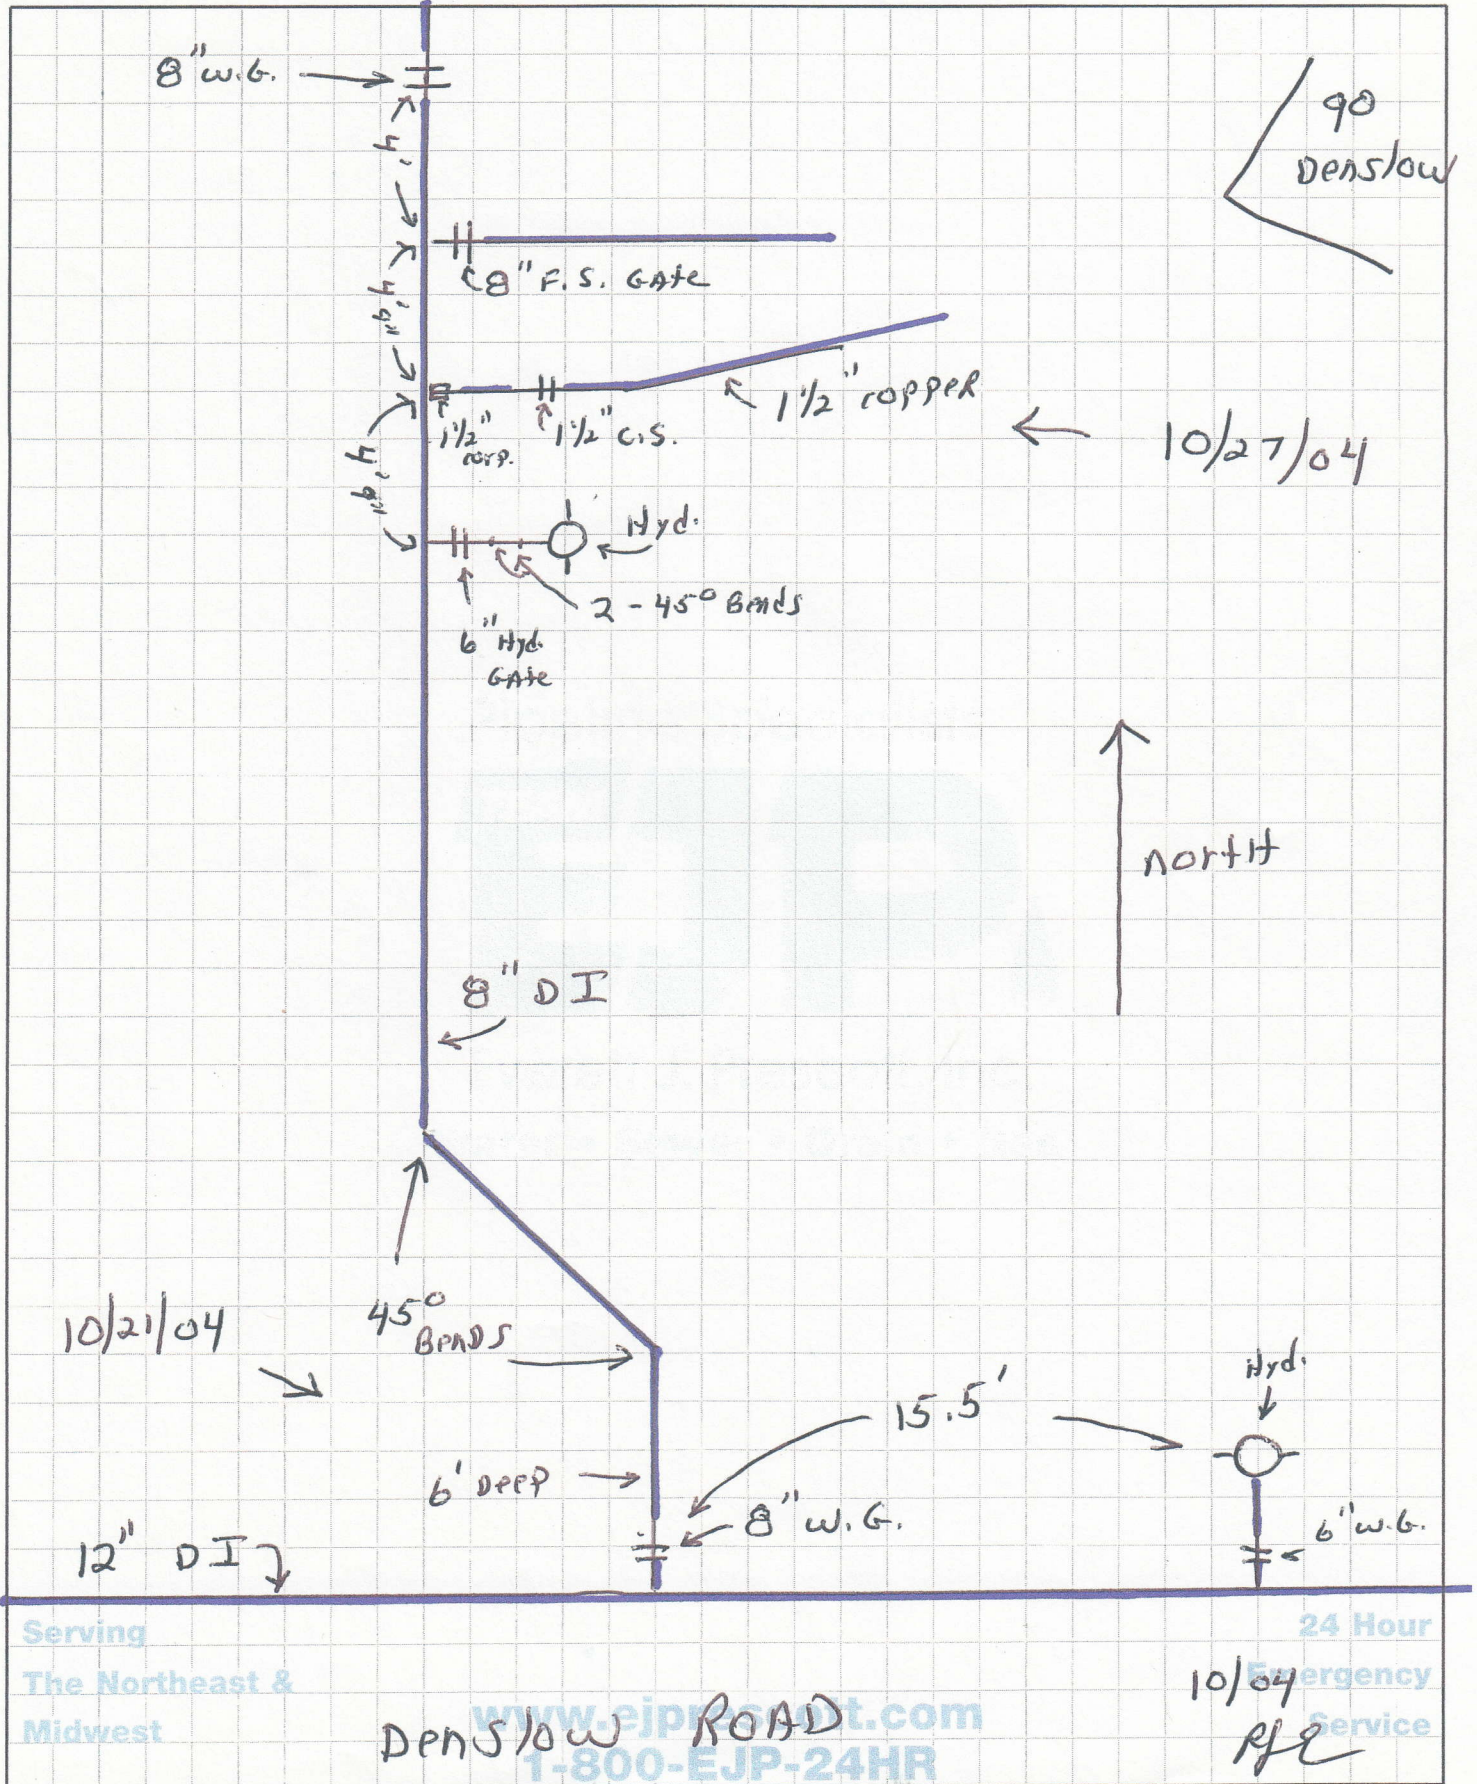 8" W.G.
90
Denslow
4'
8" F.S. GAte
4' 9"
1 1/2" copper
1 1/2" corp.
1 1/2" C.S.
10/27/04
4' 9"
Hyd.
2 - 45° Bends
6" Hyd.
GAte
nortH
8" D I
10/21/04
45°
BenDS
Hyd.
15.5'
6' Deep
8" W.G.
6" W.G.
12" D I
Serving
The Northeast &
Midwest
24 Hour
Emergency
Service
10/04
www.ejprescott.com
1-800-EJP-24HR
Denslow ROAD